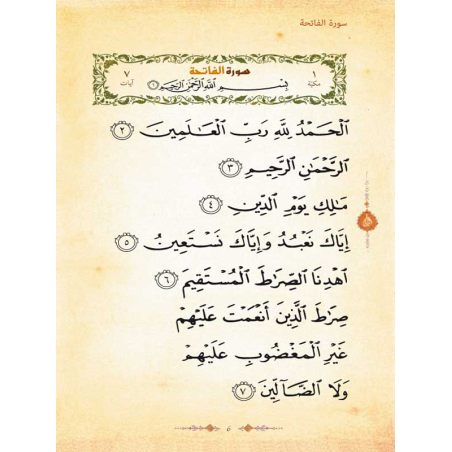 سورة الفاتحة
١ مكيّة
سورة الفاتحة
٧ آيات
بِسْمِ اللَّهِ الرَّحْمَٰنِ الرَّحِيمِ ١
الْحَمْدُ لِلَّهِ رَبِّ الْعَالَمِينَ ٢
الرَّحْمَٰنِ الرَّحِيمِ ٣
مَالِكِ يَوْمِ الدِّينِ ٤
إِيَّاكَ نَعْبُدُ وَإِيَّاكَ نَسْتَعِينُ ٥
اهْدِنَا الصِّرَاطَ الْمُسْتَقِيمَ ٦
صِرَاطَ الَّذِينَ أَنْعَمْتَ عَلَيْهِمْ
غَيْرِ الْمَغْضُوبِ عَلَيْهِمْ
وَلَا الضَّالِّينَ ٧
٤